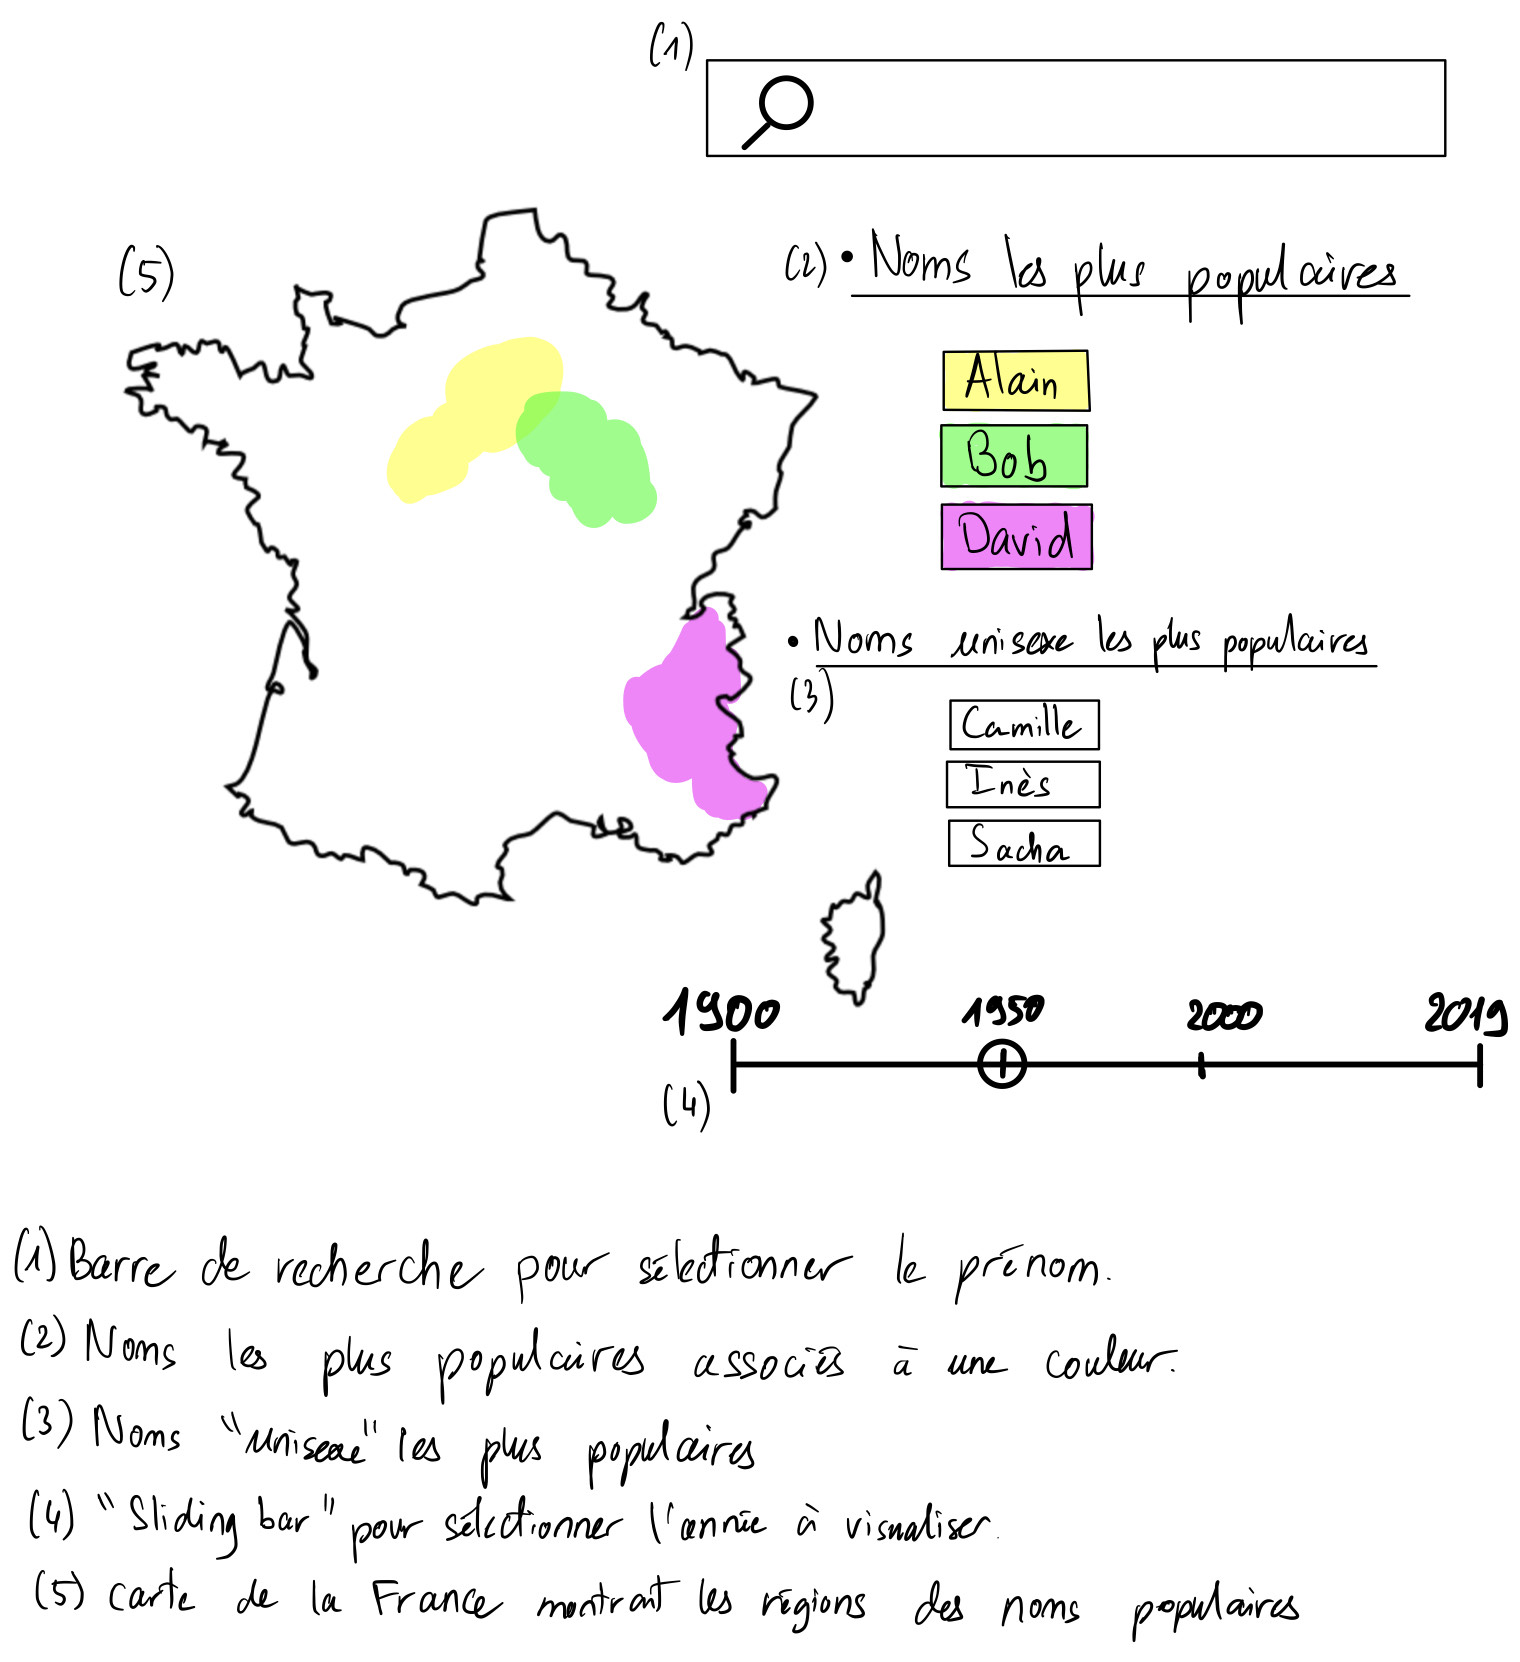 (1)
(5)
(2) • Noms les plus populaires
Alain
Bob
David
• Noms unisexe les plus populaires
(3)
Camille
Inès
Sacha
1900 1950 2000 2019
(4)
(1) Barre de recherche pour sélectionner le prénom.
(2) Noms les plus populaires associés à une couleur.
(3) Noms "unisexe" les plus populaires
(4) "Sliding bar" pour sélectionner l'année à visualiser.
(5) carte de la France montrant les régions des noms populaires